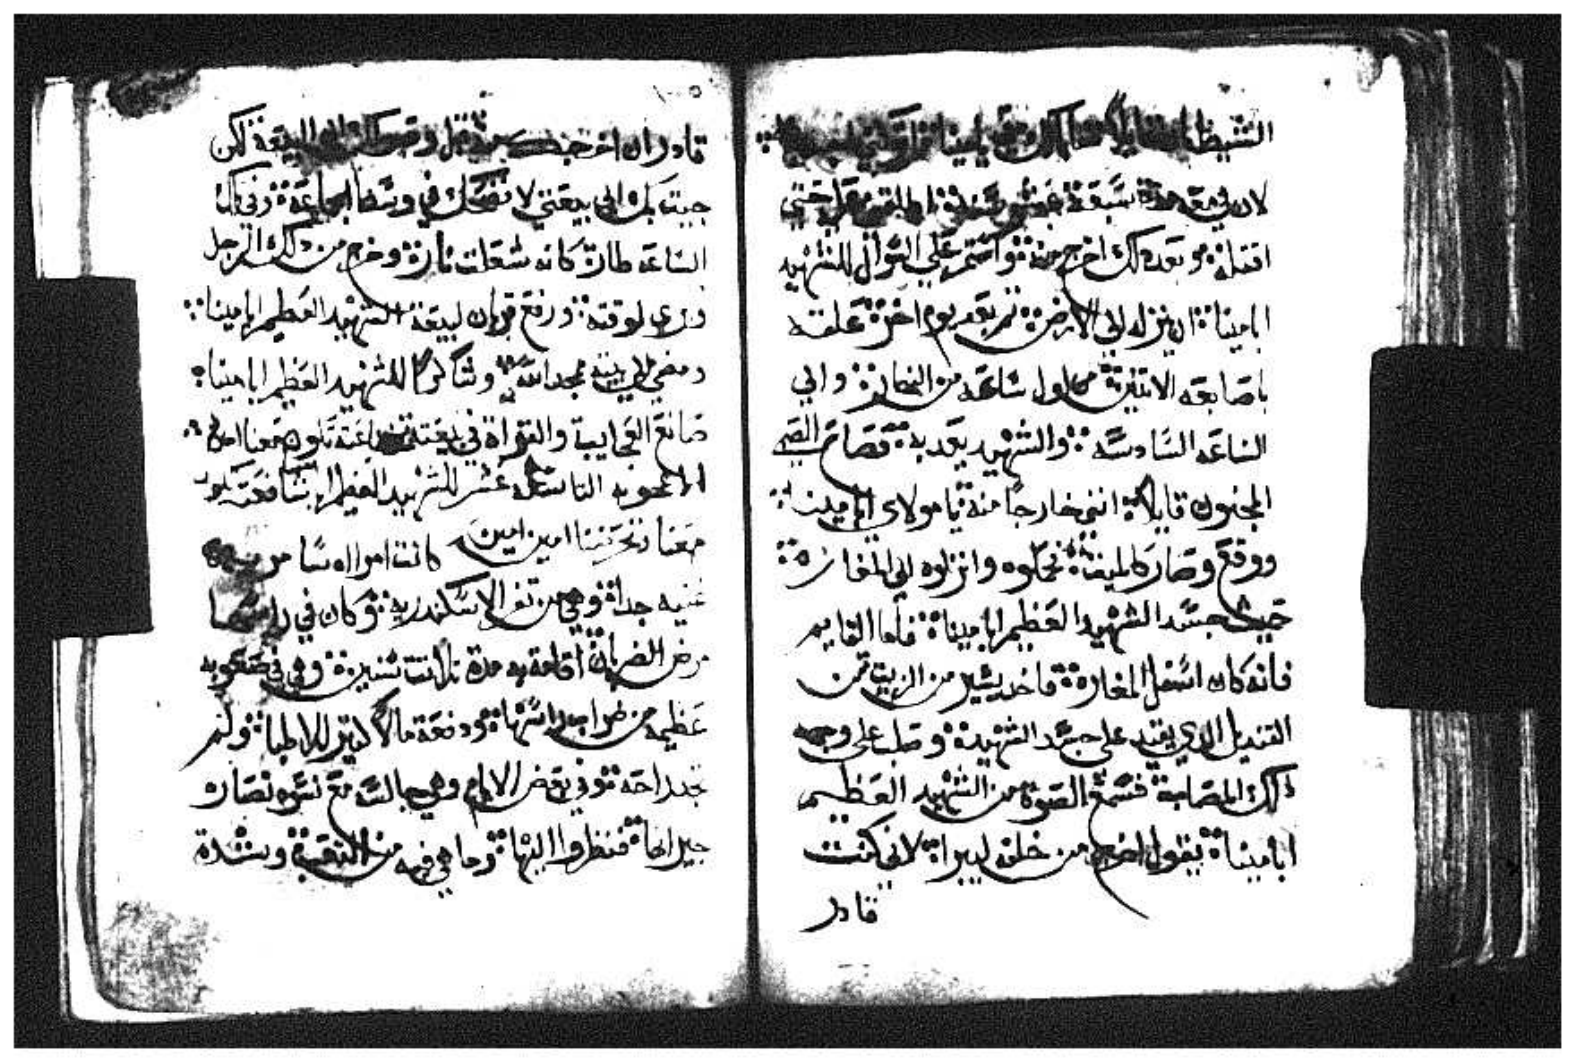 لان لي معه مدة سبعة عشر سنة حتي
اقتله وبعد دلك اخرج منه واستمر علي السوال للشهيد
ابا مينا ان ينزله الي الارض ثم بعد يوم اخر علقه
باصابعه الاتنين من اول ساعه من النهار والي
الساعه السادسه والشهيد يعدبه فصاح
المجنون قايلا انني خارجا منه يا مولاي ابا مينا
ووقع وصار كالميت فحملوه وانزلوه الي المغاره
حيث جسد الشهيد العظيم ابا مينا فاما القايم
فانه كان اسفل المغاره فاخد يسير من الزيت من
القنديل الدي يقيد علي جسد الشهيد وصلب علي وجهه
دلك المصاب فسمع الصوت من الشهيد العظيم
ابا مينا يقول اخرج من خلفه ليبرا لاني كنت
قادر
قادر ان اخرجك منه قبل البيعة لكن
جيت بك الي بيعتي لا في وسط الجماعة وفي تلك
الساعه طار كانه شعلت نار وخرج من دلك الرجل
وبري لوقته ورفع قربان لبيعة الشهيد العظيم ابا مينا
ومضي الي بيته مجد الله وشاكرا للشهيد العظيم ابا مينا
صانع العجايب والقواة في بيعته شفاعته تكون معنا امين
الاعجوبه التاسعة عشر للشهيد العظيم ابا شفاعته تكون
معنا وتحرسنا امين امين كانت امراه سامريه
غنيه جدا وهي من تغر الاسكندريه وكان في راسها
مرض الضربان اقامة به مدة تلاتت سنين وهي في صعوبه
عظيمه من ضراب راسها ودفعة مالا كتير للاطبا ولم
تجد راحه وفي بعض الايام وهي جالسه مع نسوه نصاره
جيرانها فنظروا اليها وما هي فيه من التعب وشدة